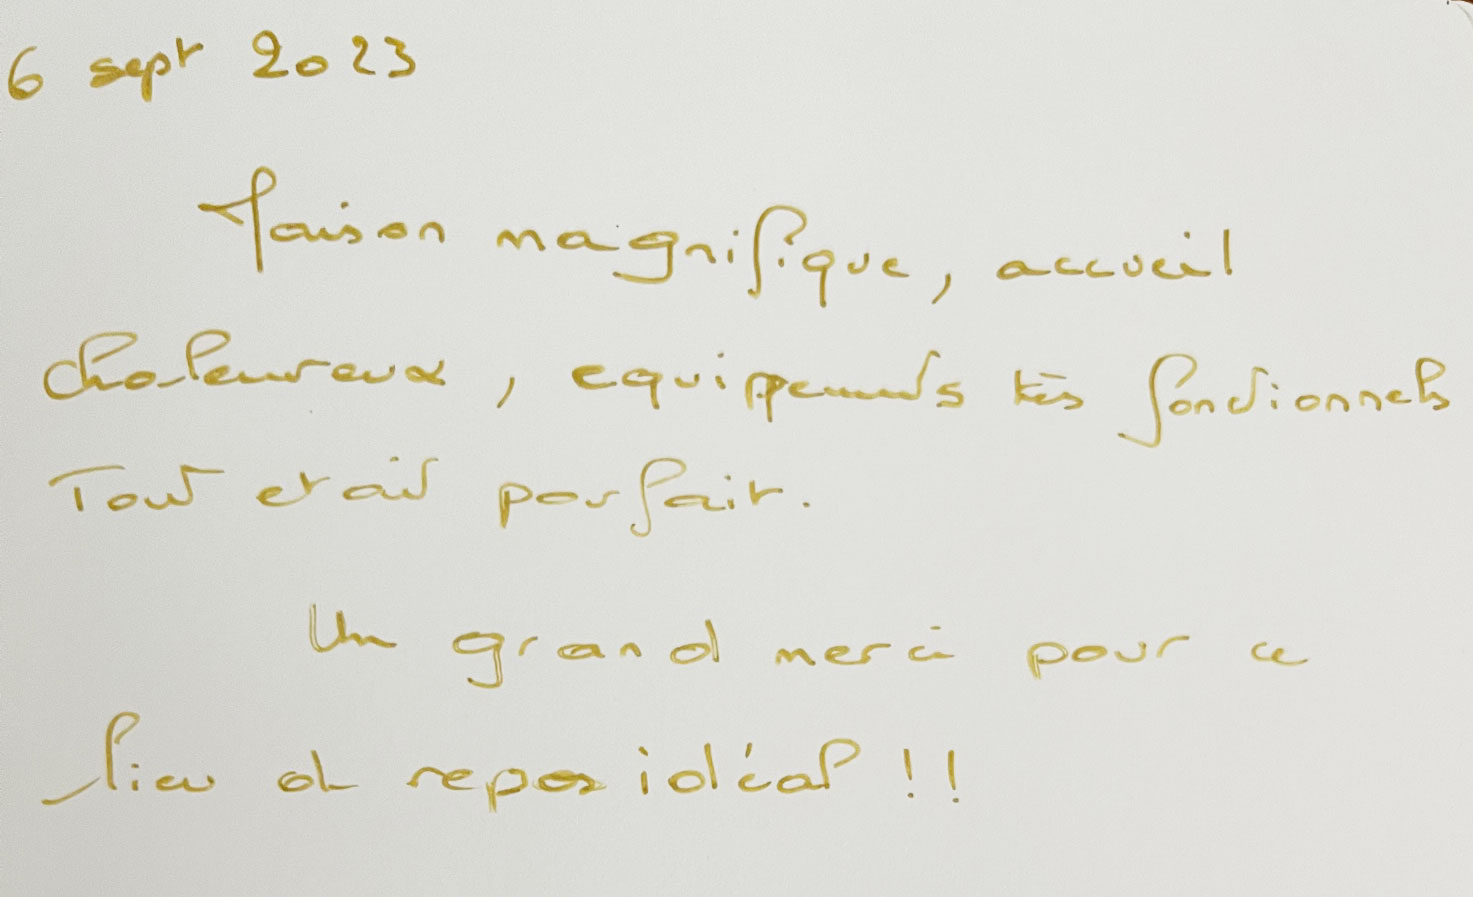 6 sept 2023
Maison magnifique, accueil
chaleureux, equipements très fonctionnels
Tout etait parfait.
Un grand merci pour ce
lieu de repos idéal !!